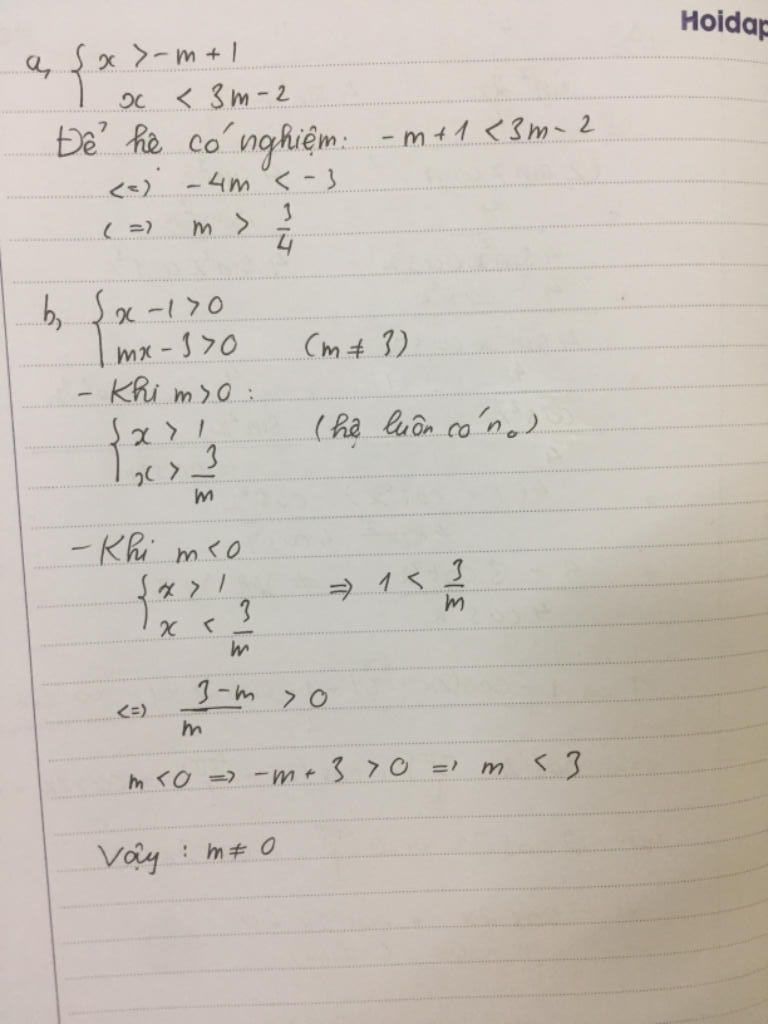 Hoidap
a, { x > -m + 1
x < 3m - 2
Để hê có nghiệm: -m + 1 < 3m - 2
<=> -4m < -3
<=> m > 3/4
b, { x - 1 > 0
mx - 3 > 0 (m ≠ 3)
- Khi m > 0 :
{ x > 1 (hệ luôn có n₀)
x > 3/m
- Khi m < 0
{ x > 1 => 1 < 3/m
x < 3/m
<=> (3 - m)/m > 0
m < 0 => -m + 3 > 0 => m < 3
Vậy : m ≠ 0